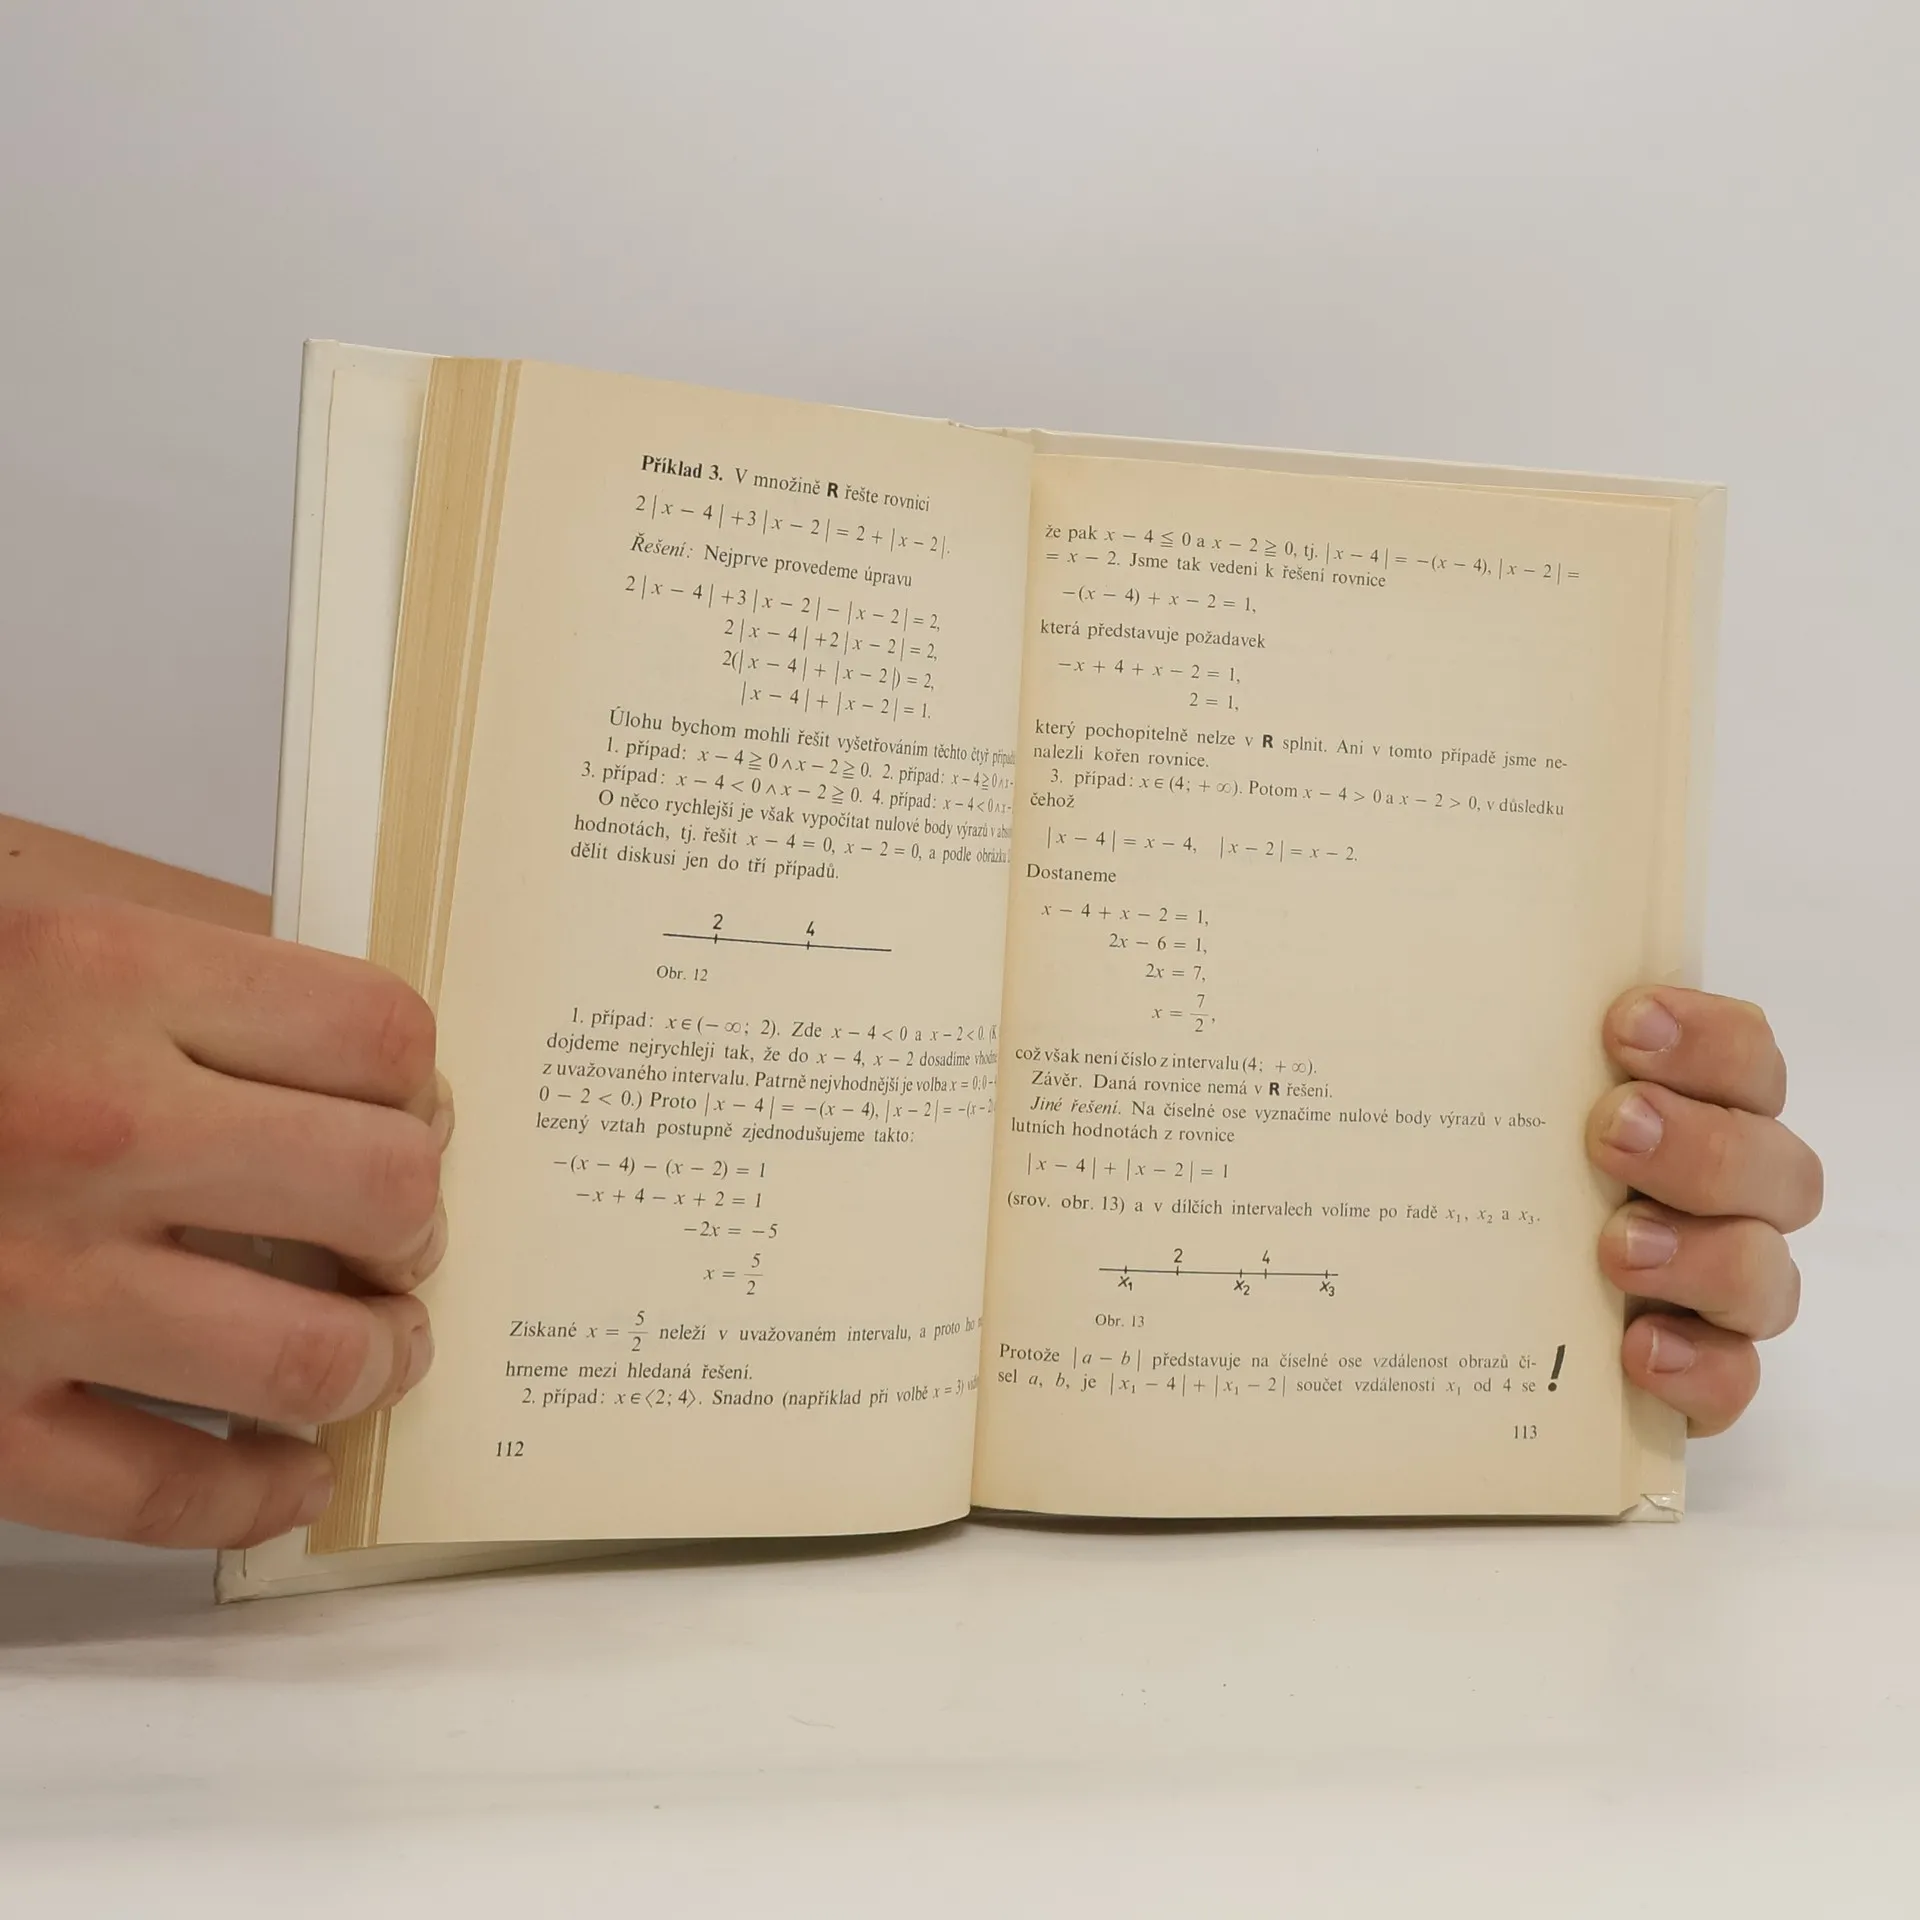 Příklad 3. V množině R řešte rovnici
2|x − 4| +3|x − 2| = 2 + |x − 2|.
Řešení: Nejprve provedeme úpravu
2|x − 4| +3|x − 2| − |x − 2| = 2,
2|x − 4| +2|x − 2| = 2,
2(|x − 4| + |x − 2|) = 2,
|x − 4| + |x − 2| = 1.
Úlohu bychom mohli řešit vyšetřováním těchto čtyř
1. případ: x − 4 ≧ 0 ∧ x − 2 ≧ 0. 2. případ: x − 4 ≧ 0 ∧ x −
3. případ: x − 4 < 0 ∧ x − 2 ≧ 0. 4. případ: x − 4 < 0 ∧ x −
O něco rychlejší je však vypočítat nulové body výrazů v
hodnotách, tj. řešit x − 4 = 0, x − 2 = 0, a podle
dělit diskusi jen do tří případů.
2 4
Obr. 12
1. případ: x ∈ (− ∞; 2). Zde x − 4 < 0 a x − 2 < 0. (K
dojdeme nejrychleji tak, že do x − 4, x − 2 dosadíme
z uvažovaného intervalu. Patrně nejvhodnější je volba x = 0; 0 −
0 − 2 < 0.) Proto |x − 4| = −(x − 4), |x − 2| = −(x − 2
lezený vztah postupně zjednodušujeme takto:
−(x − 4) − (x − 2) = 1
−x + 4 − x + 2 = 1
−2x = −5
x = 5/2
Získané x = 5/2 neleží v uvažovaném intervalu, a proto ho
hrneme mezi hledaná řešení.
2. případ: x ∈ ⟨2; 4⟩. Snadno (například při volbě x = 3)
112
že pak x − 4 ≦ 0 a x − 2 ≧ 0, tj. |x − 4| = −(x − 4), |x − 2| =
= x − 2. Jsme tak vedeni k řešení rovnice
−(x − 4) + x − 2 = 1,
která představuje požadavek
−x + 4 + x − 2 = 1,
2 = 1,
který pochopitelně nelze v R splnit. Ani v tomto případě jsme ne-
nalezli kořen rovnice.
3. případ: x ∈ (4; + ∞). Potom x − 4 > 0 a x − 2 > 0, v důsledku
čehož
|x − 4| = x − 4, |x − 2| = x − 2.
Dostaneme
x − 4 + x − 2 = 1,
2x − 6 = 1,
2x = 7,
x = 7/2,
což však není číslo z intervalu (4; + ∞).
Závěr. Daná rovnice nemá v R řešení.
Jiné řešení. Na číselné ose vyznačíme nulové body výrazů v abso-
lutních hodnotách z rovnice
|x − 4| + |x − 2| = 1
(srov. obr. 13) a v dílčích intervalech volíme po řadě x₁, x₂ a x₃.
2 4
x₁ x₂ x₃
Obr. 13
Protože |a − b| představuje na číselné ose vzdálenost obrazů čí-
sel a, b, je |x₁ − 4| + |x₁ − 2| součet vzdáleností x₁ od 4 se !
113